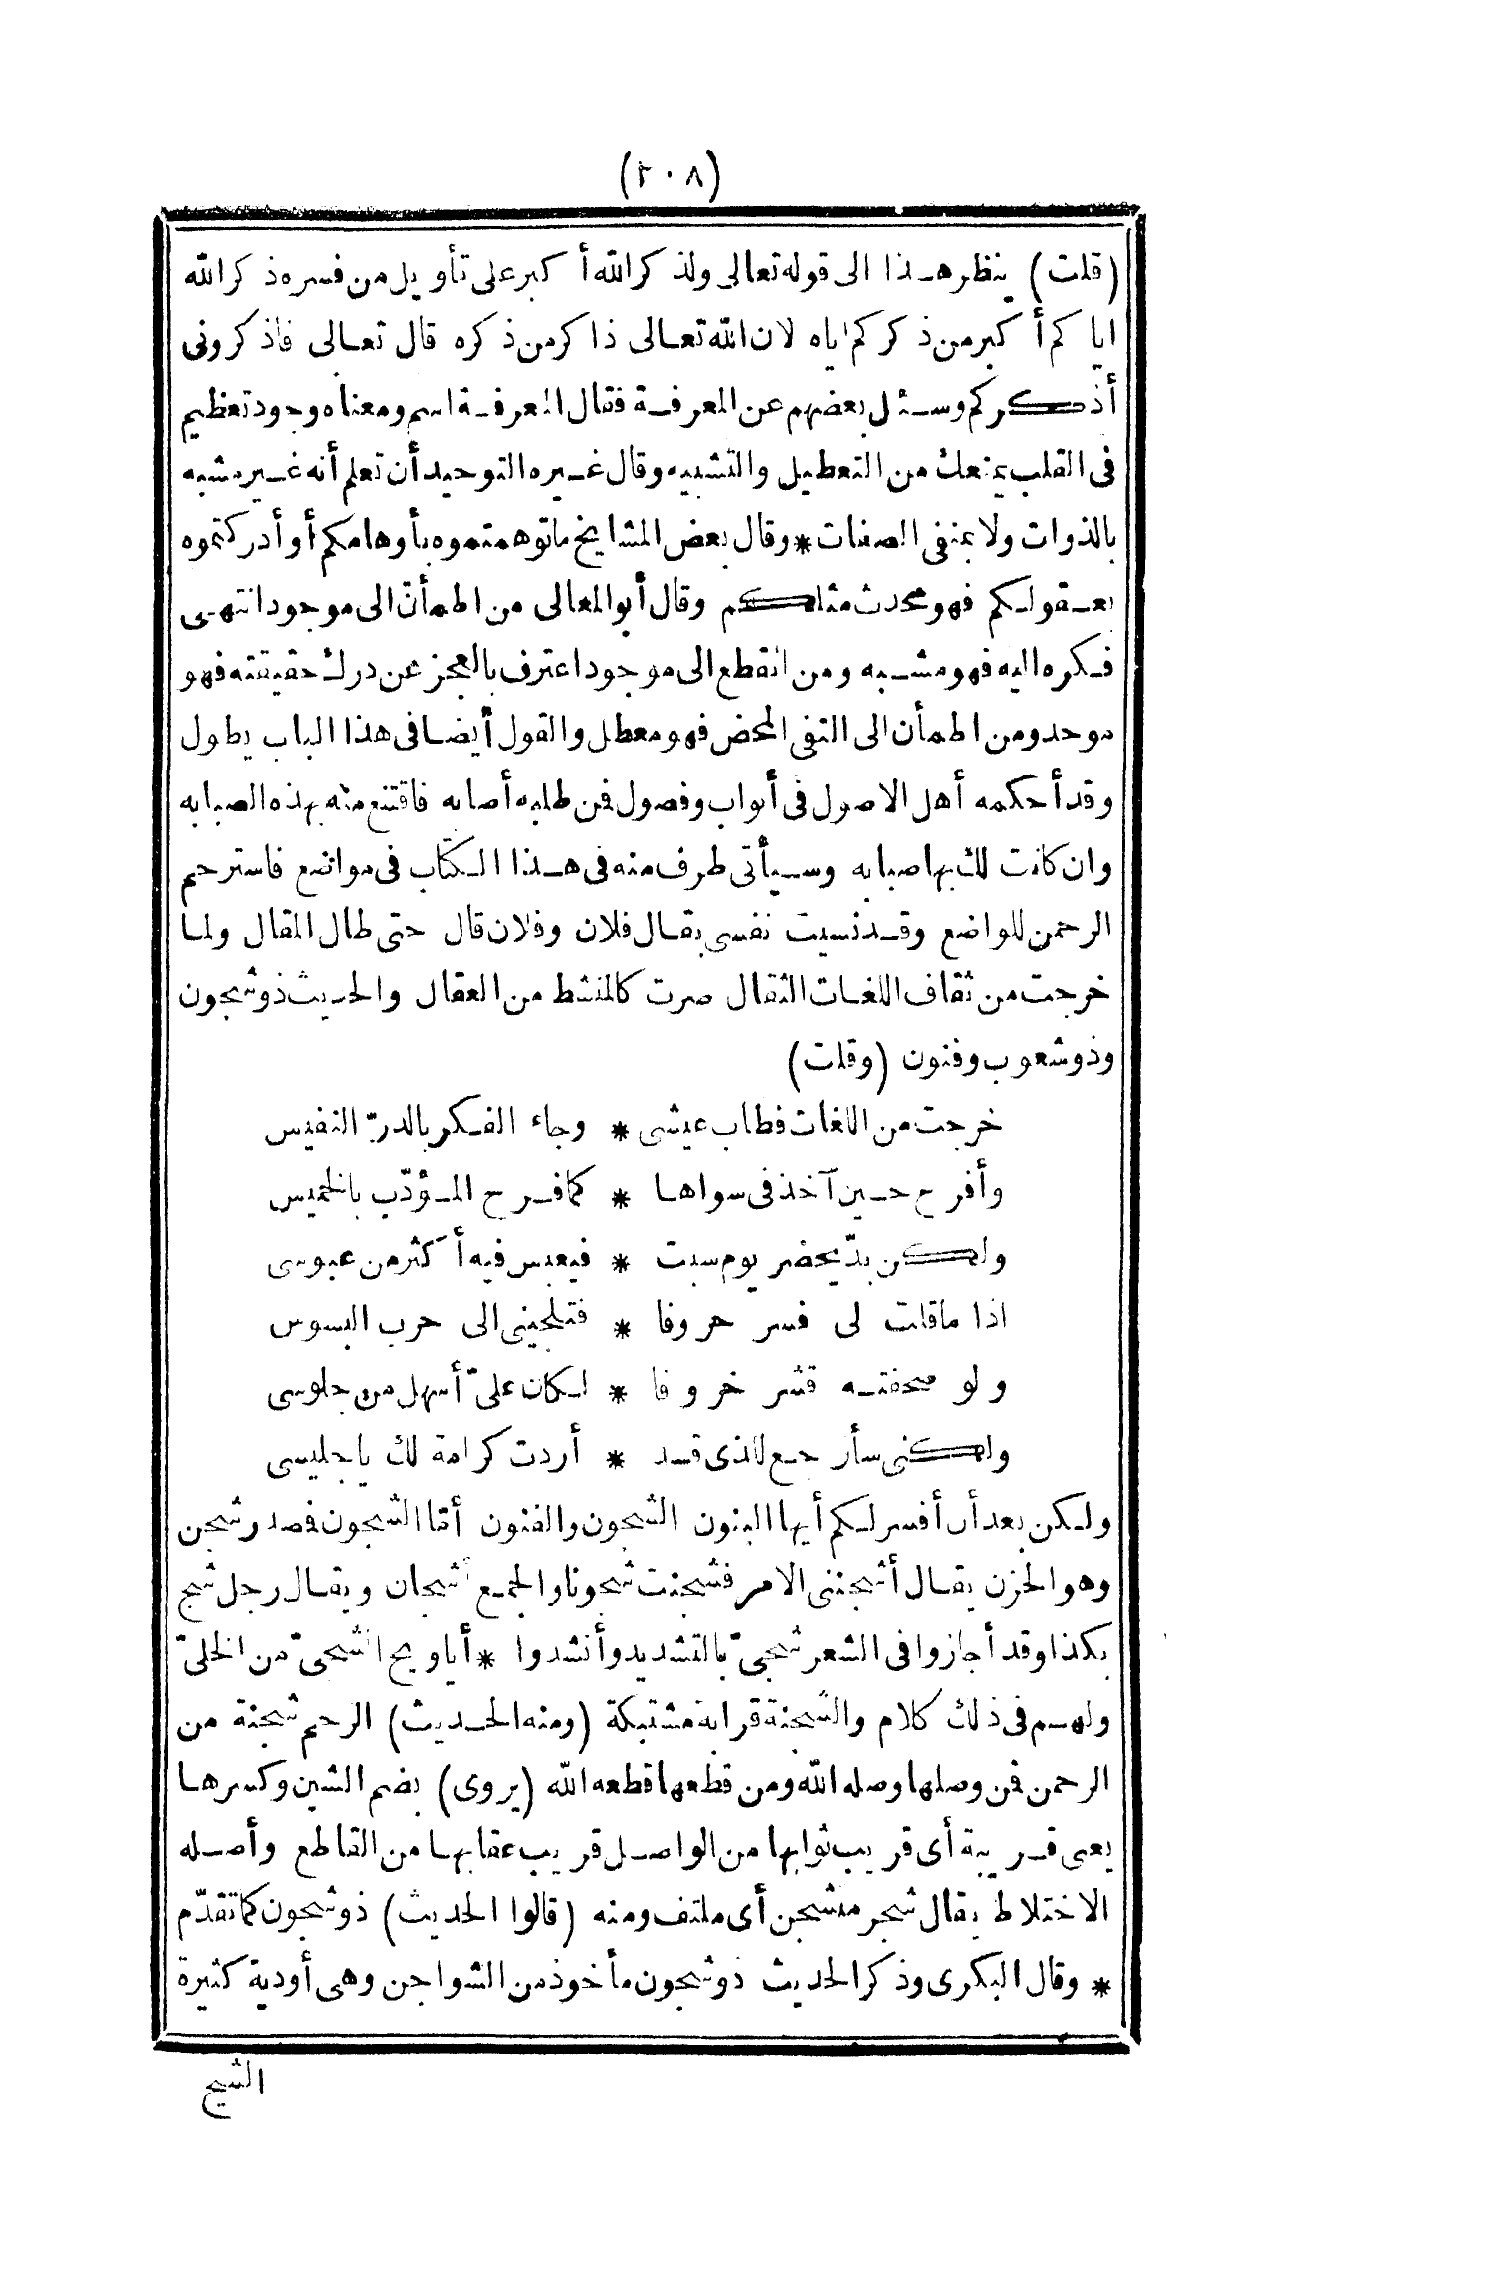 (٢٠٨)
(قلت) ينظر هذا الى قوله تعالى ولذكر الله أكبر على تأويل من فسره ذكر الله
اياكم أكبر من ذكركم اياه لان الله تعالى ذاكر من ذكره قال تعالى فاذكرونى
أذكركم وسئل بعضهم عن المعرفة فقال المعرفة اسم ومعناه وجود تعظيم
فى القلب يمنعك من التعطيل والتشبيه وقال غيره التوحيد أن تعلم أنه غير مشبه
بالذوات ولا بمنفى الصفات * وقال بعض المشايخ ما توهمتموه بأوهامكم أو أدركتموه
بعقولكم فهو محدث مثلكم وقال أبو المعالى من اطمأن الى موجود انتهى
فكره اليه فهو مشبه ومن انقطع الى موجود اعترف بالعجز عن درك حقيقته فهو
موحد ومن اطمأن الى النفى المحض فهو معطل والقول أيضا فى هذا الباب يطول
وقد أحكمه أهل الاصول فى أبواب وفصول فمن طلبه أصابه فاقتنع منه بهذه الصبابه
وان كانت لك بها صبابه وسيأتى طرف منه فى هذا الكتاب فى مواضع فاسترحم
الرحمن للواضع وقد نسيت نفسى بقال فلان وفلان قال حتى طال المقال ولما
خرجت من ثقاف اللغات الثقال صرت كالمنشط من العقال والحديث ذو شجون
وذو شعوب وفنون (وقلت)
خرجت من اللغات فطاب عيشى * وجاء الفكر بالدرّ النفيس
وأفرح حين آخذ فى سواها * كما فرح المؤدّب بالخميس
ولكن بدّ يحضر يوم سبت * فيعبس فيه أكثر من عبوسى
اذا ما قلت لى فسر حروفا * فتلجينى الى حرب البسوس
ولو صحفته قشر خروفا * لكان علىّ أسهل من جلوسى
ولكنى سأرجع للذى قد * أردت كرامة لك يا جليسى
ولكن بعد أن أفسر لكم أيها البنون الشجون والفنون أمّا الشجون فصدر شجن
وهو الحزن يقال أشجننى الامر فشجنت شجونا والجمع أشجان ويقال رجل شج
بكذا وقد أجازوا فى الشعر شجىّ بالتشديد وأنشدوا * أيا ويح الشجىّ من الخلىّ
ولهم فى ذلك كلام والشجنة قرابة مشتبكة (ومنه الحديث) الرحم شجنة من
الرحمن فمن وصلها وصله الله ومن قطعها قطعه الله (يروى) بضم الشين وكسرها
يعنى قريبة أى قريب ثوابها من الواصل قريب عقابها من القاطع وأصله
الاختلاط يقال شجر متشجن أى ملتف ومنه (قالوا الحديث) ذو شجون كما تقدّم
* وقال البكرى وذكر الحديث ذو شجون مأخوذ من الشواجن وهى أودية كثيرة
الشيج